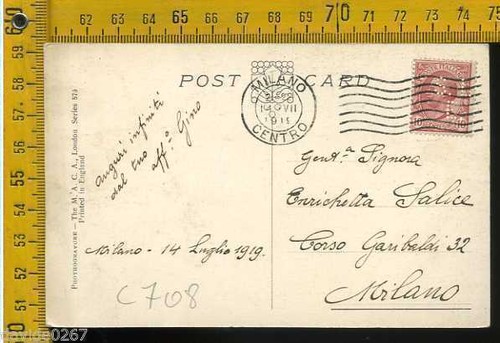 POST CARD
MILANO
CENTRO
10
auguri infiniti
dal tuo
aff.º Gino
Milano - 14 Luglio 1919.
Gent.ª Signora
Enrichetta Salice
Corso Garibaldi 32
Milano
C708
PHOTOGRAVURE — The M. A. C. A., London Series 573
Printed in England
60 61 62 63 64 65 66 67 68 69 70 71 72 73 74 75
59
58
57
56
55
54
53
52
51
davide0267